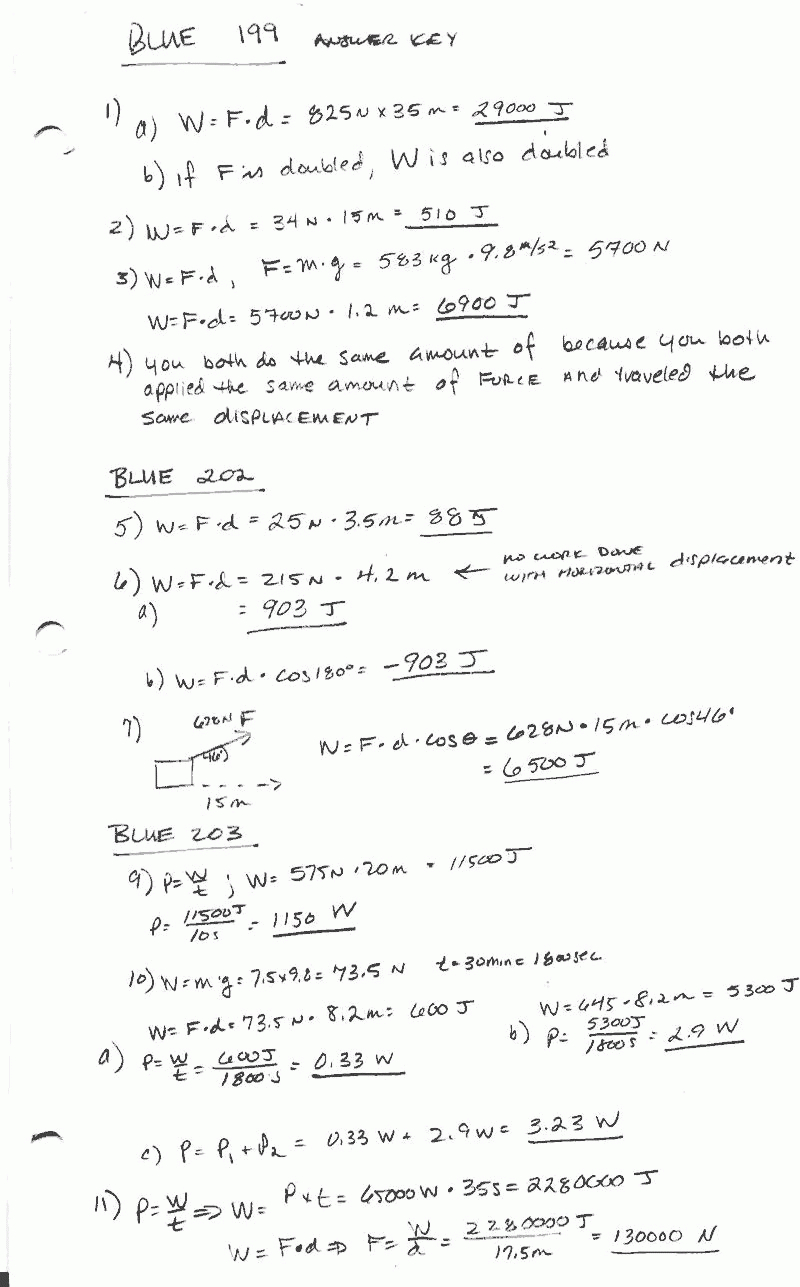 BLUE 199 ANSWER KEY
1) a) W = F·d = 825N x 35 m = 29000 J
b) if F is doubled, W is also doubled
2) W = F·d = 34 N · 15 m = 510 J
3) W = F·d, F = m·g = 583 kg · 9.8 m/s2 = 5700 N
W = F·d = 5700N · 1.2 m = 6900 J
4) you both do the same amount of because you both
applied the same amount of FORCE AND traveled the
same DISPLACEMENT
BLUE 202
5) W = F·d = 25 N · 3.5m = 88 J
6) W = F·d = 215 N · 4.2 m ← NO WORK DONE
WITH HORIZONTAL displacement
a) = 903 J
b) W = F·d · cos180° = -903 J
7) 628N F
46°
15 m
W = F·d·cosθ = 628N · 15 m · cos46°
= 6500 J
BLUE 203
9) P = W/t ; W = 575N · 20 m = 11500 J
P = 11500J/10s = 1150 W
10) W = m·g = 7.5x9.8 = 73.5 N t = 30min = 1800sec
W = F·d = 73.5 N · 8.2m = 600 J
W = 645 · 8.2 m = 5300 J
a) P = W/t = 600J/1800s = 0.33 W
b) P = 5300J/1800s = 2.9 W
c) P = P1 + P2 = 0.33 W + 2.9 W = 3.23 W
11) P = W/t ⇒ W = P x t = 65000 W · 35s = 2280000 J
W = F·d ⇒ F = W/d = 2280000 J/17.5m = 130000 N